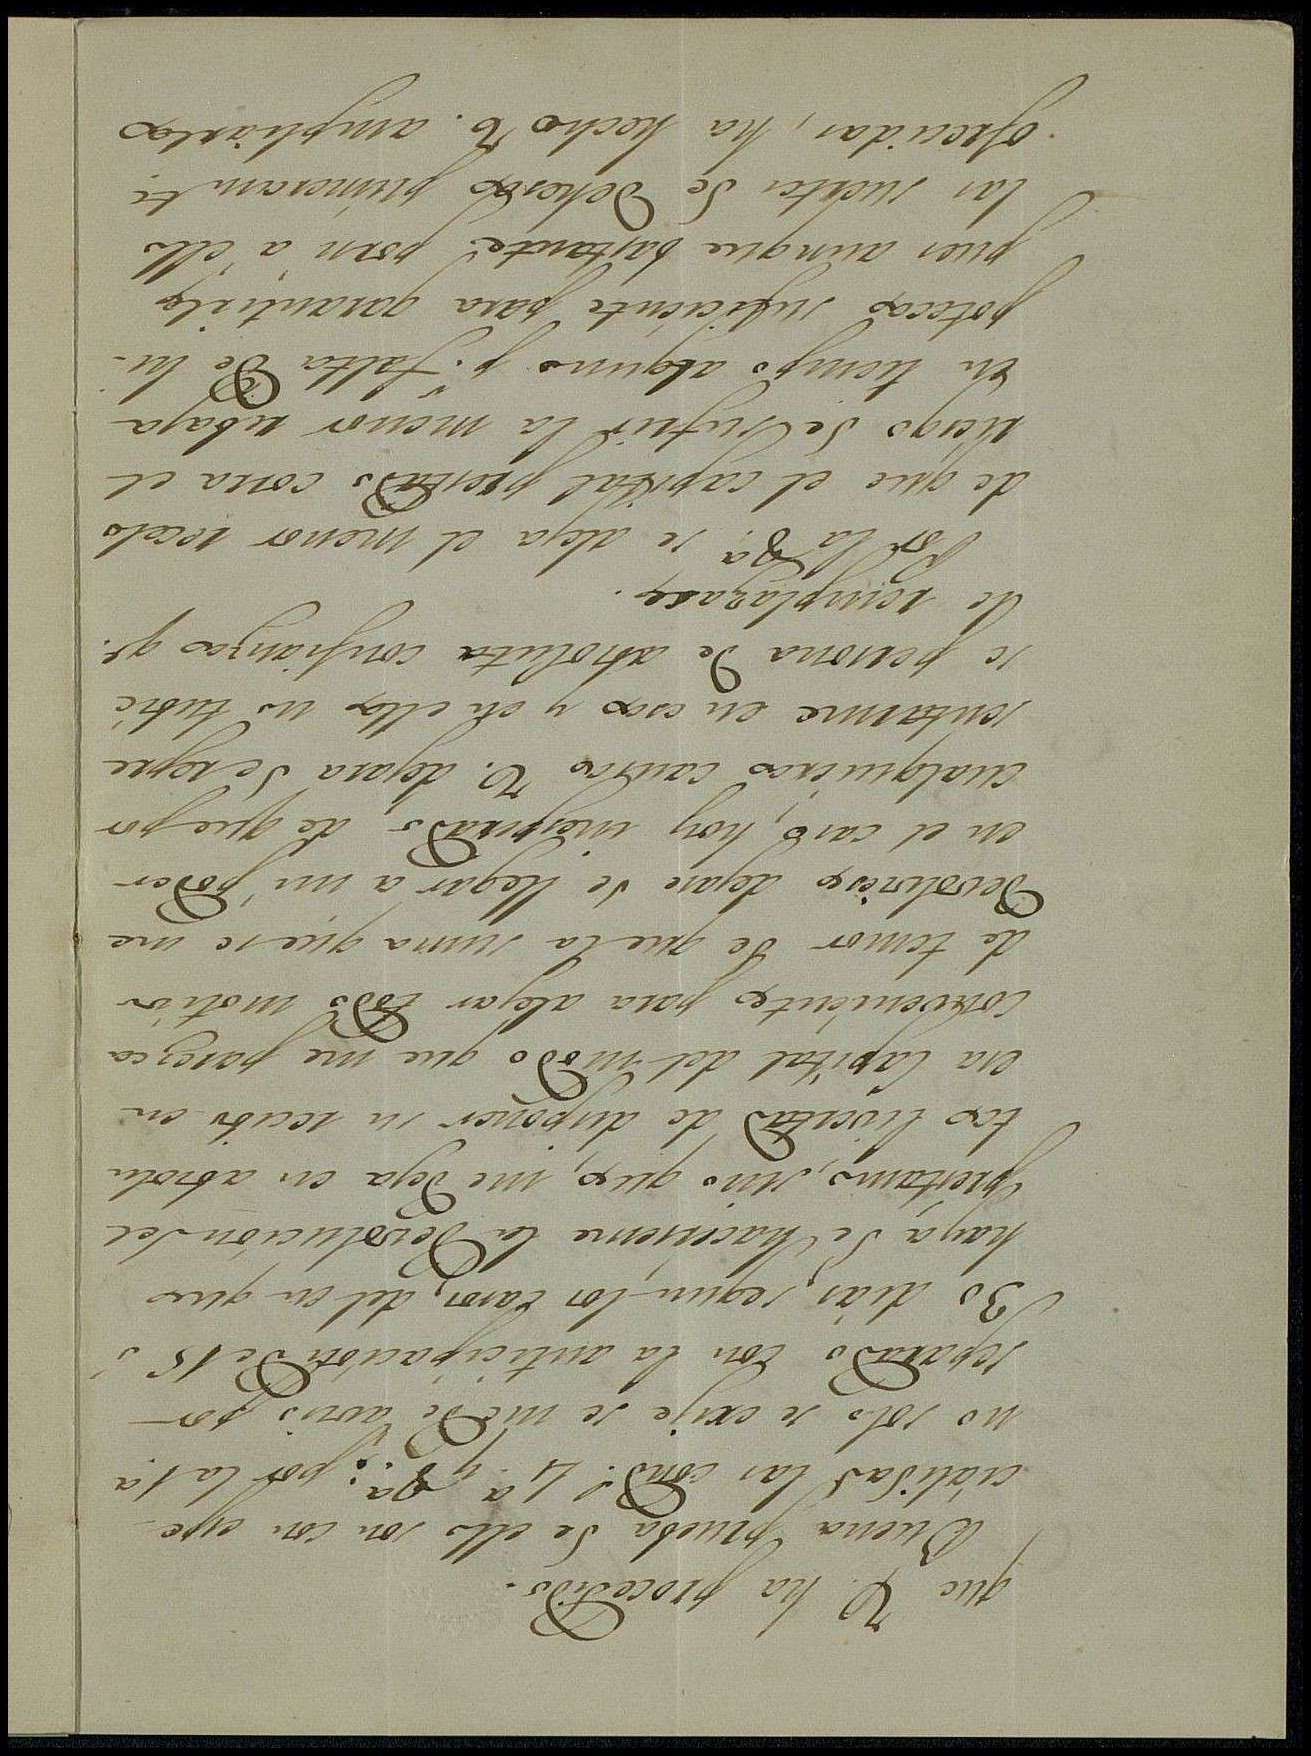 que V. ha procedido.
Buena prueba de ello son con espe-
cialidad las cond.s 4.a y 8a: por la 1.a
no solo se exije se me dé aviso, por
separado con la anticipacion de 15 ó
30 dias, segun los casos, del en que
haya de hacerseme la devolucion del
prestamo, sino que, me deja en absolu
ta livertad de disponer su recibo en
esa Capital del modo que me parezca
conveniente para alejar todo motivo
de temor de que la suma que se me
devolviese dejare de llegar a mi poder
en el caso, hoy inesperado de que por
cualquiera causa V. dejara de repre
sentarme en esa y en ella no tubie
se persona de absoluta confianza q.e
le remplazase.
Por la 8.a se aleja el menor recelo
de que el capital prestado corra el
riesgo de sufrir la menor rebaja
en tiempo alguno p.r falta de hi-
poteca suficiente para garantirlo
pues aunque bastante p.a ello
las suertes de Dehesa primeram.te
ofrecidas, ha hecho V. ampliarla